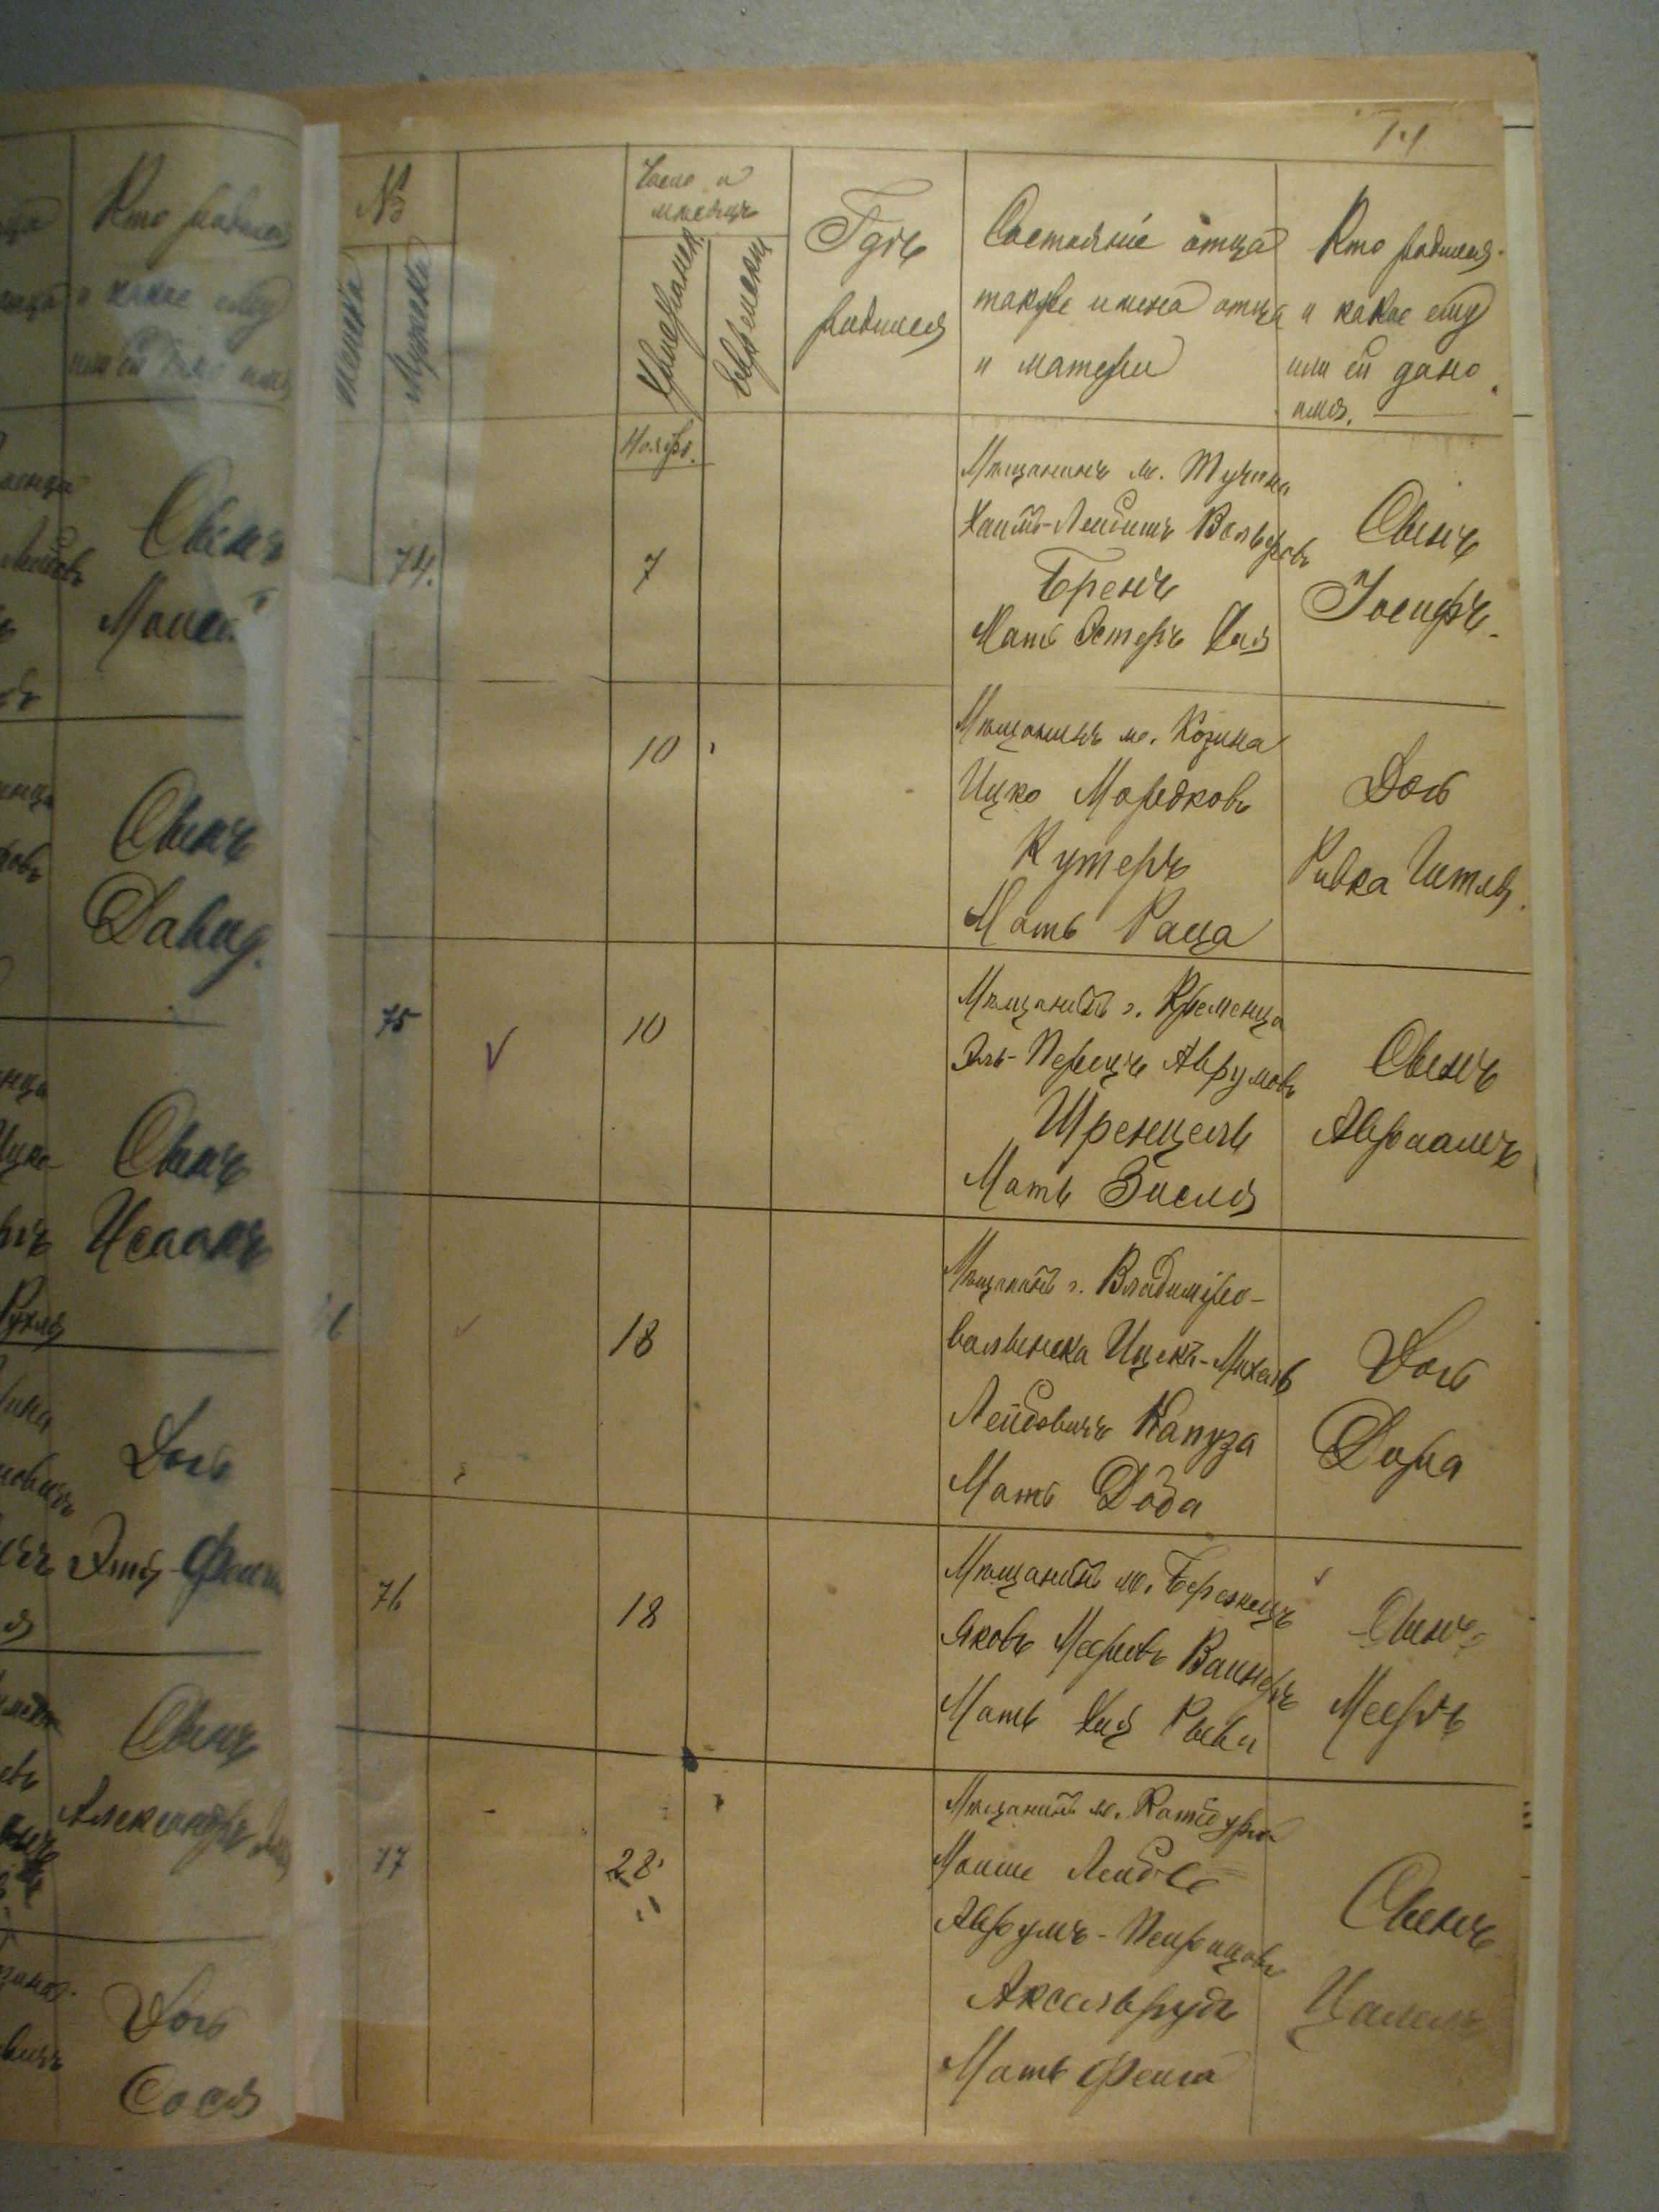 14
№
Женска
Мужска
Число и
мѣсяцъ
Христіанск.
Еврейскій
Гдѣ
родился
Состояніе отца
также имена отца
и матери
Кто родился
и какое ему
или ей дано
имя.
Ноябрь.
74.
7
Мѣщанинъ м. Тучина
Хаимъ-Лейбишъ Вольфовъ
Бренъ
Мать Эстеръ Хая
Сынъ
Іосифъ.
10
Мѣщанинъ м. Козина
Ицко Мордковъ
Кутеръ
Мать Раца
Дочь
Ривка Итля.
75
10
Мѣщанинъ г. Кременца
Эль-Перецъ Аврумовъ
Шренцель
Мать Бися
Сынъ
Авраамъ
18
Мѣщанинъ г. Владиміро-
волынска Ицекъ-Михель
Лейбовичъ Капуза
Мать Доба
Дочь
Дора
76
18
Мѣщанинъ м. Березецъ
Яковъ Мееровъ Вайнеръ
Мать Хая Рыва
Сынъ
Мееръ
77
28
Мѣщанинъ м. Катербурга
Мойше Лейбъ
Аврумъ-Пейрицовъ
Аксельрудъ
Мать Фейга
Сынъ
Кто родился
и какое ему
или ей дано имя
Сынъ
Моисей
Сынъ
Давид.
Сынъ
Исаакъ
Дочь
Сынъ
Александръ
Дочь
Сося